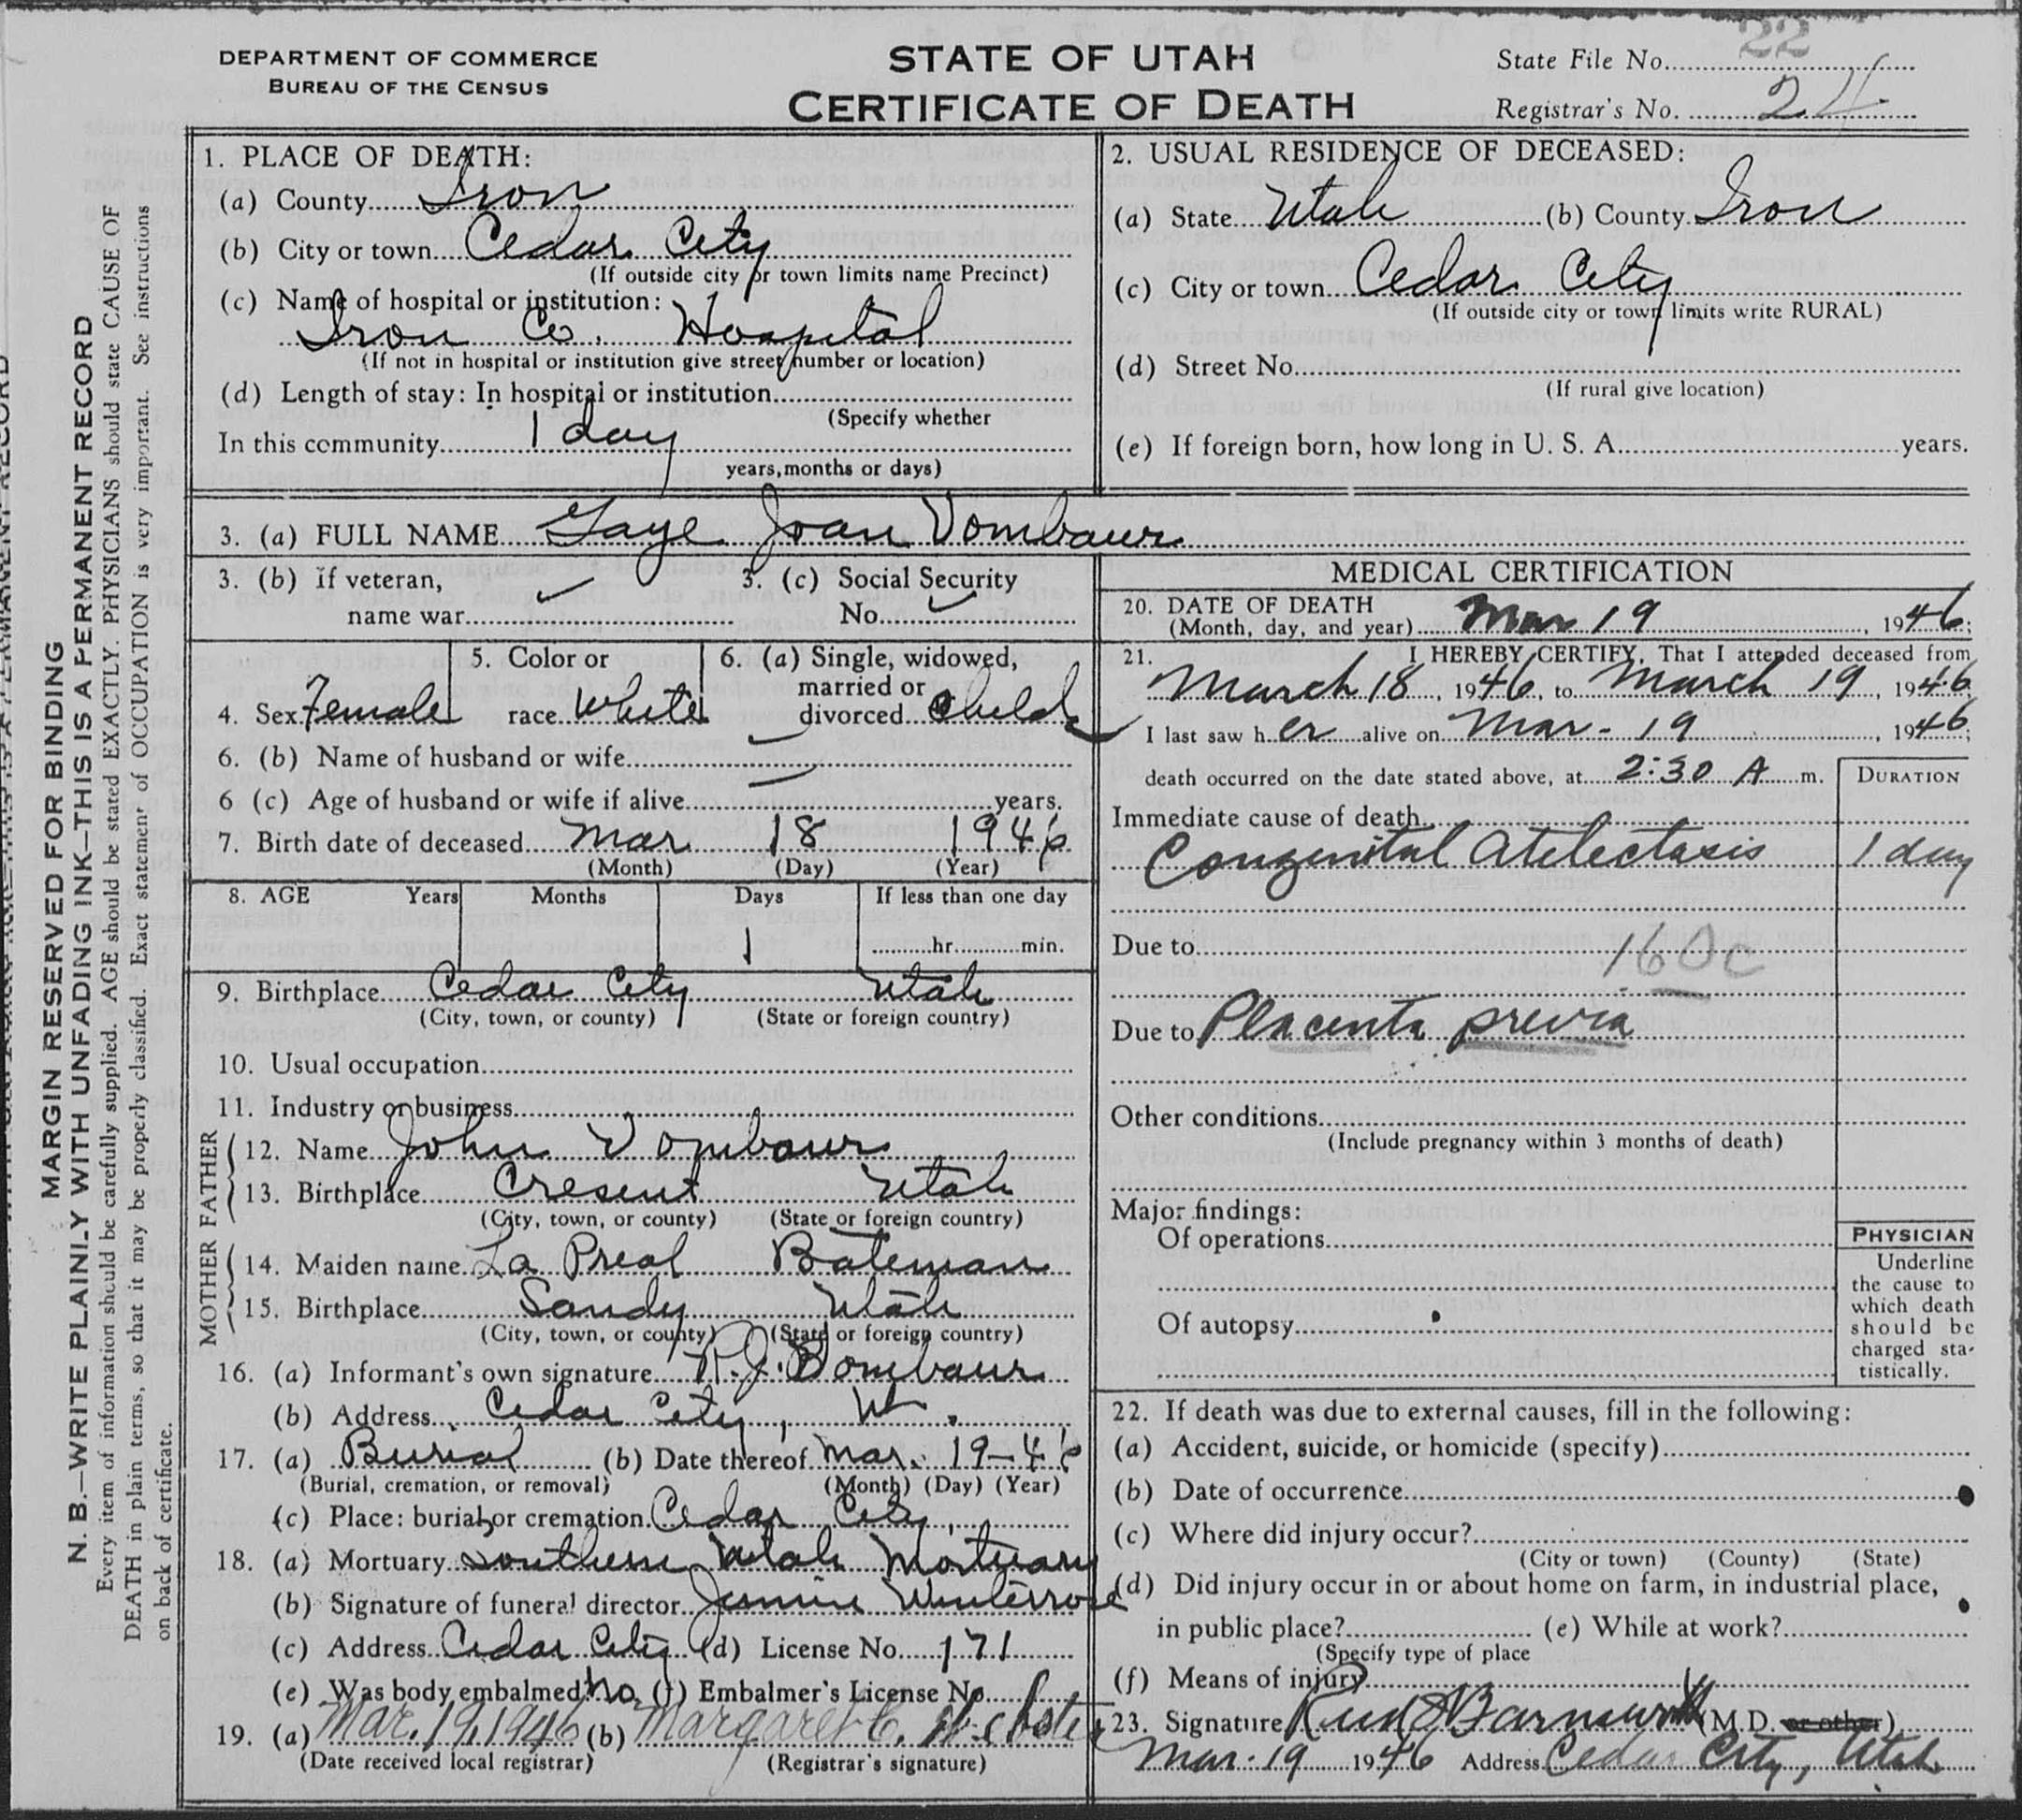 DEPARTMENT OF COMMERCE
BUREAU OF THE CENSUS
STATE OF UTAH
CERTIFICATE OF DEATH
State File No. 22
Registrar's No. 24
MARGIN RESERVED FOR BINDING
N. B.—WRITE PLAINLY WITH UNFADING INK—THIS IS A PERMANENT RECORD
Every item of information should be carefully supplied. AGE should be stated EXACTLY. PHYSICIANS should state CAUSE OF
DEATH in plain terms, so that it may be properly classified. Exact statement of OCCUPATION is very important. See instructions
on back of certificate.
1. PLACE OF DEATH:
(a) County Iron
(b) City or town Cedar City
(If outside city or town limits name Precinct)
(c) Name of hospital or institution:
Iron Co. Hospital
(If not in hospital or institution give street number or location)
(d) Length of stay: In hospital or institution
(Specify whether
In this community 1 day
years, months or days)
2. USUAL RESIDENCE OF DECEASED:
(a) State Utah (b) County Iron
(c) City or town Cedar City
(If outside city or town limits write RURAL)
(d) Street No.
(If rural give location)
(e) If foreign born, how long in U. S. A. years.
3. (a) FULL NAME Gaye Joan Vombaur
3. (b) If veteran,
name war
3. (c) Social Security
No.
4. Sex Female
5. Color or
race White
6. (a) Single, widowed,
married or
divorced child
6. (b) Name of husband or wife
6 (c) Age of husband or wife if alive years.
7. Birth date of deceased Mar 18 1946
(Month) (Day) (Year)
8. AGE Years Months Days If less than one day
1 hr. min.
9. Birthplace Cedar City Utah
(City, town, or county) (State or foreign country)
10. Usual occupation
11. Industry or business
FATHER
12. Name John Vombaur
13. Birthplace Cresent Utah
(City, town, or county) (State or foreign country)
MOTHER
14. Maiden name La Preal Bateman
15. Birthplace Sandy Utah
(City, town, or county) (State or foreign country)
16. (a) Informant's own signature Vombaur
(b) Address Cedar City, Ut.
17. (a) Burial (b) Date thereof Mar. 19-46
(Burial, cremation, or removal) (Month) (Day) (Year)
(c) Place: burial or cremation Cedar City,
18. (a) Mortuary Southern Utah Mortuary
(b) Signature of funeral director Winterrose
(c) Address Cedar City (d) License No. 171
(e) Was body embalmed? No (f) Embalmer's License No.
19. (a) Mar. 19, 1946 (b) Margaret C. Webster
(Date received local registrar) (Registrar's signature)
MEDICAL CERTIFICATION
20. DATE OF DEATH
(Month, day, and year) Mar 19, 1946;
21. I HEREBY CERTIFY, That I attended deceased from
March 18, 1946, to March 19, 1946
I last saw her alive on Mar - 19, 1946;
death occurred on the date stated above, at 2:30 A m.
DURATION
Immediate cause of death
Congenital Atelectasis 1 day
Due to 160c
Due to Placenta previa
Other conditions
(Include pregnancy within 3 months of death)
Major findings:
Of operations
Of autopsy
PHYSICIAN
Underline
the cause to
which death
should be
charged sta-
tistically.
22. If death was due to external causes, fill in the following:
(a) Accident, suicide, or homicide (specify)
(b) Date of occurrence
(c) Where did injury occur?
(City or town) (County) (State)
(d) Did injury occur in or about home on farm, in industrial place,
in public place? (e) While at work?
(Specify type of place
(f) Means of injury
23. Signature (M.D. or other)
Mar. 19 1946 Address Cedar City, Utah